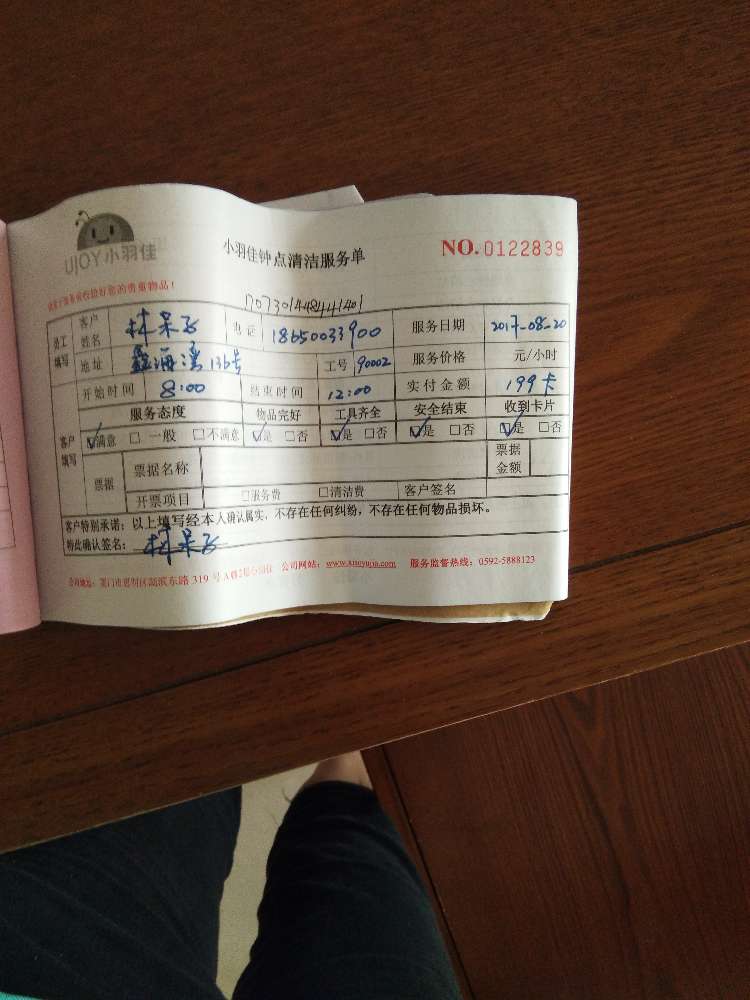 UJOY小羽佳
小羽佳钟点清洁服务单
NO.0122839
贵重物品!
1707301448441401
员工填写
客户姓名 林呆飞 电话 18650033900 服务日期 2017-08-20
地址 鑫海湾136号 工号 90002 服务价格 元/小时
开始时间 8:00 结束时间 12:00 实付金额 199卡
客户填写
服务态度 物品完好 工具齐全 安全结束 收到卡片
☑满意 □一般 □不满意 ☑是 □否 ☑是 □否 ☑是 □否 ☑是 □否
票据 票据名称 票据金额
开票项目 □服务费 □清洁费 客户签名
客户特别承诺:以上填写经本人确认属实,不存在任何纠纷,不存在任何物品损坏。
特此确认签名:林呆飞
公司地址:厦门市思明区 东路319号 公司网站:www.xiaoyujia.com 服务监督热线:0592-5888123